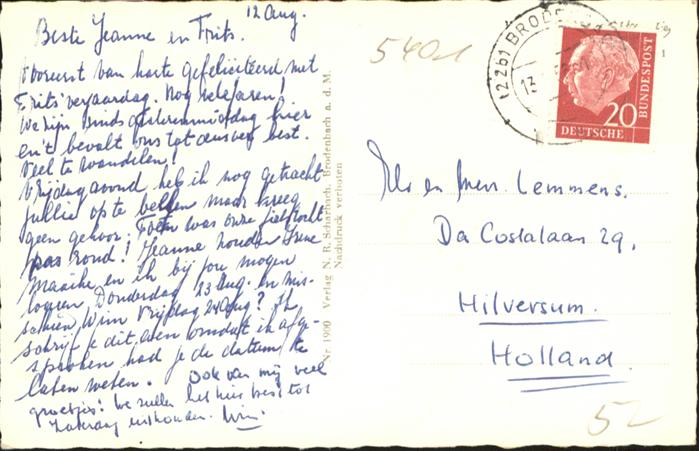 12 Aug.
Beste Jeanne en Frits.
Vooreerst van harte gefeliciteerd met
Frits' verjaardag. Nog vele jaren!
We zijn sinds gisterenmiddag hier
en 't bevalt ons tot dusver best.
Veel te wandelen!
Vrijdagavond heb ik nog getracht
jullie op te bellen maar kreeg
geen gehoor. Toen was onze fietstocht
pas rond! Jeanne zouden Irene
Maaike en ik bij jou mogen
logeren Donderdag 23 Aug. en mis-
schien Wim Vrijdag 24 Aug? Ik
schrijf je dit even omdat ik afge-
sproken had je de datum te
laten weten. Ook van mij veel
groetjes! We zullen het hier best tot
Zaterdag uithouden. Wim.
Nr 1900 Verlag N. R. Scharbach, Brodenbach a. d. M.
Nachdruck verboten
5401
(22b) BRODENBACH
13
20
DEUTSCHE
BUNDESPOST
1
en Mevr. Lemmens.
Da Costalaan 29.
Hilversum.
Holland.
52